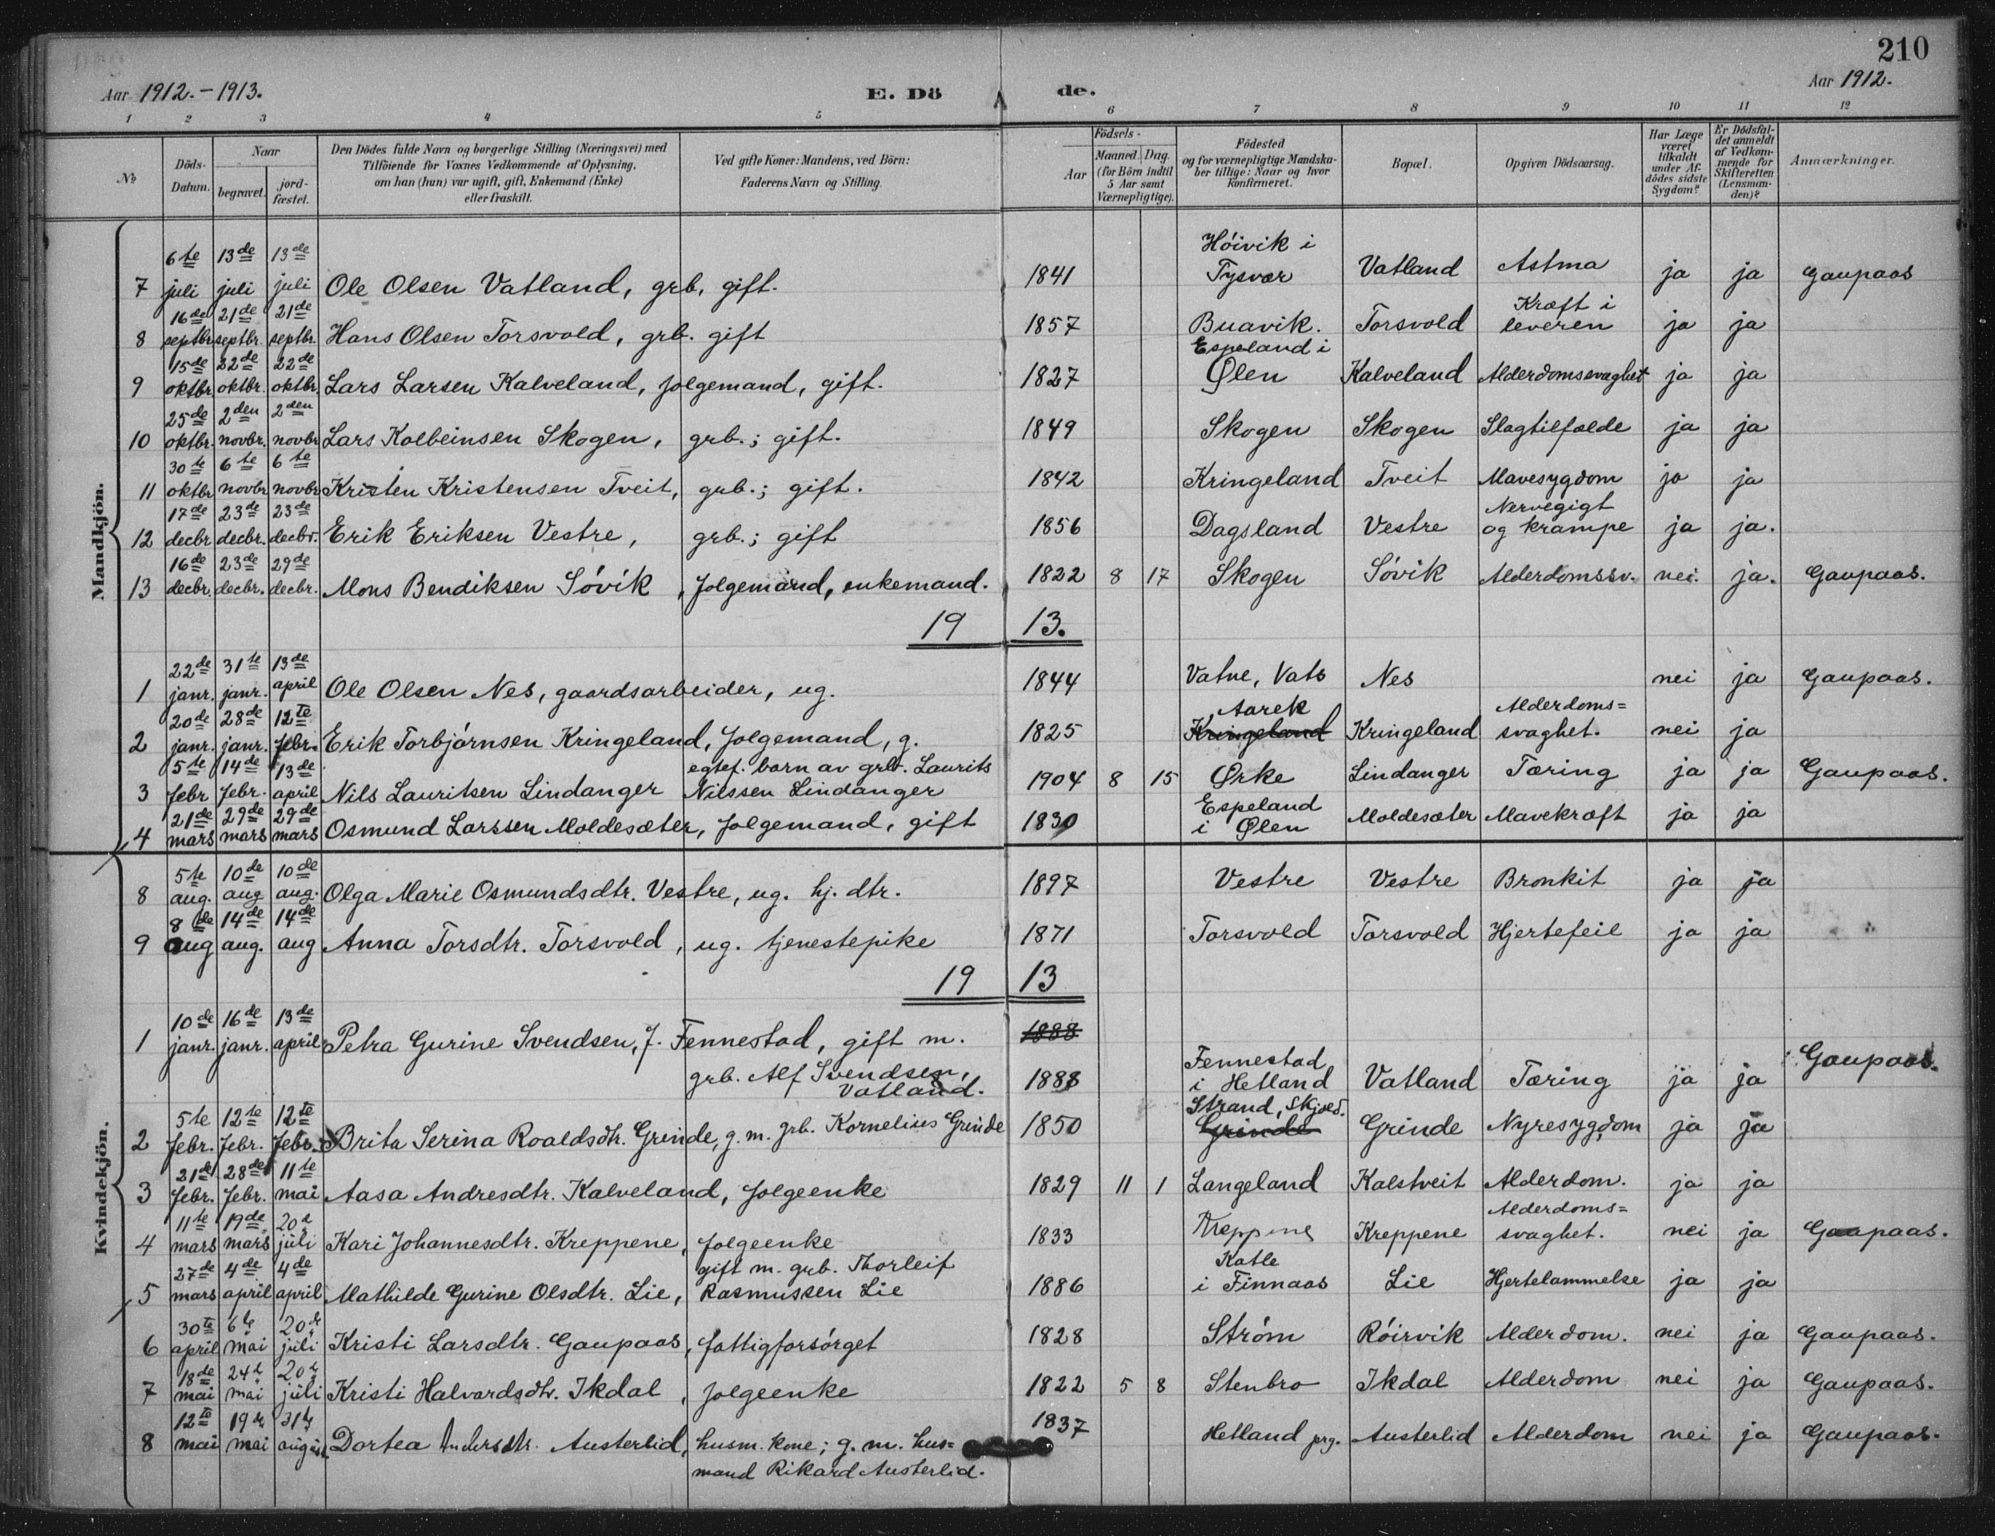 210
Aar 1912.-1913.
E. Dö de.
Aar 1912.
1 2 3 4 5 6 7 8 9 10 11 12
№
Döds-Datum.
Naar
begravet.
jord-fæstet.
Den Dödes fulde Navn og borgerlige Stilling (Næringsvei) med
Tilföiende for Voxnes Vedkommende af Oplysning,
om han (hun) var ugift, gift, Enkemand (Enke)
eller fraskilt.
Ved gifte Koner: Mandens, ved Börn:
Faderens Navn og Stilling.
Födsels-
Aar
Maaned. Dag.
(for Börn indtil
5 Aar samt
Værnepligtige).
Födested
og for værnepligtige Mandska-
ber tillige: Naar og hvor
konfirmeret.
Bopæl.
Opgiven Dödsaarsag.
Har Læge
været
tilkaldt
under Af-
dödes sidste
Sygdom?
Er Dödsfal-
det anmeldt
af Vedkom-
mende for
Skifteretten
(Lensman-
den)?
Anmærkninger.
Mandkjön.
7 6te juli 13de juli 13de juli Ole Olsen Vatland, grb, gift. 1841 Höivik i Tysvær Vatland Astma ja ja Gaupaas
8 16de septbr. 21de septbr. 21de septbr. Hans Olsen Torsvold, grb. gift 1857 Buavik. Torsvold Kræft i leveren ja ja
9 15de oktbr. 22de oktbr. 22de oktbr. Lars Larsen Kalveland, folgemand, gift. 1827 Espeland i Ølen Kalveland Alderdomssvaghet ja ja
10 25de oktbr. 2den novbr. 2den novbr. Lars Kolbeinsen Skogen, grb.; gift. 1849 Skogen Skogen Slagtilfælde ja ja
11 30te oktbr 6te novbr 6te novbr Kristen Kristensen Tveit, grb.; gift. 1842 Kringeland Tveit Mavesygdom ja ja
12 17de decbr 23de decbr. 23de decbr. Erik Eriksen Vestre, grb.; gift 1856 Dagsland Vestre Nervegigt og krampe ja ja.
13 16de decbr. 23de decbr. 29de decbr. Mons Bendiksen Sövik, folgemand, enkemand. 1822 8 17 Skogen Sövik Alderdomssv. nei. ja. Gaupaas.
19 13.
1 22de janr. 31te janr. 13de april Ole Olsen Nes, gaardsarbeider, ug. 1844 Vatne, Vats Nes nei ja Gaupaas.
2 20de janr. 28de janr. 12te febr. Erik Torbjörnsen Kringeland, folgemand, g. 1825 Aarek Kringeland Kringeland Alderdoms=svaghet. nei ja
3 5te febr 14de febr. 13de april Nils Lauritsen Lindanger egtef. barn av grb. Laurits Nilssen Lindanger 1904 8 15 Ørke Lindanger Tæring ja ja Gaupaas.
4 21de mars 29de mars 29de mars Osmund Larssen Moldesæter, folgemand, gift 1830 Espeland i Ølen Moldesæter Mavekræft ja ja
Kvindekjön.
8 5te aug. 10de aug 10de aug. Olga Marie Osmundsdtr. Vestre, ug. hj. dtr. 1897 Vestre Vestre Bronkit ja ja
9 8de aug 14de aug. 14de aug Anna Torsdtr. Torsvold, ug. tjenestepike 1871 Torsvold Torsvold Hjertefeil ja ja
19 13
1 10de janr. 16de janr. 13de april Petra Gurine Svendsen, f. Fennestad, gift m. 1888
grb. Alf Svendsen, Vatland. 1888 Fennestad i Hetland Vatland Tæring ja ja Gaupaas.
2 5te febr. 12te febr. 12te febr. Brita Serina Roaldsdtr. Grinde, g. m. grb. Kornelius Grinde 1850 Strand, Skjold. Grinde Grinde Nyresygdom ja ja
3 21de febr. 28de febr. 11te mai Aasa Andresdtr. Kalveland, folgeenke 1829 11 1 Langeland Kalstveit Alderdom. ja ja
4 11te mars 19de mars 20d juli Kari Johannesdtr. Kreppene, folgeenke 1833 Kreppene Kreppene Alderdoms=svaghet. nei ja Gaupaas.
5 27de mars 4de april 4de april Mathilde Gurine Olsdtr. Lie, gift m. grb. Thorleif Rasmussen Lie 1886 Katle i Finnaas Lie Hjertelammelse ja ja
6 30te april 6te mai 20d juli Kristi Larsdtr. Gaupaas, fattigforsörget 1828 Ström Röirvik Alderdom. nei ja Gaupaas.
7 18de mai 24d mai 20d juli Kristi Halvardsdtr. Ikdal, folgeenke 1822 5 8 Stenbro Ikdal Alderdom nei ja Gaupaas.
8 12te mai 19de mai 31te august Dortea Andersdtr. Austerlid, husm. kone; g. m. hus=mand Rikard Austerlid. 1837 Hetland prg. Austerlid Alderdom nei ja Gaupaas.